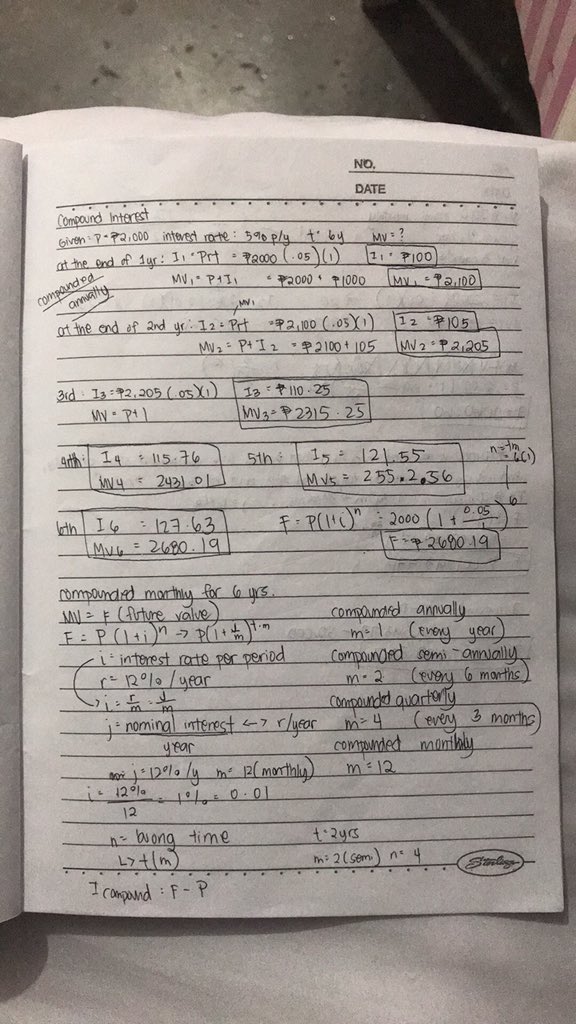 NO.
DATE
Compound Interest
Given: P = ₱2,000 interest rate: 5% p/y t = 6y MV = ?
at the end of 1yr: I₁ = Prt = ₱2000 (.05)(1) I₁ = ₱100
compounded annually
MV₁ = P+I₁ = ₱2000 + ₱1000 MV₁ = ₱2,100
MV₁
at the end of 2nd yr: I₂ = Prt = ₱2,100 (.05)(1) I₂ = ₱105
MV₂ = P+I₂ = ₱2100+105 MV₂ = ₱2,205
3rd: I₃ = ₱2,205 (.05)(1) I₃ = ₱110.25
MV = P+I MV₃ = ₱2315.25
4th: I₄ = 115.76 5th: I₅ = 121.55 n = tm
MV₄ = 2431.01 MV₅ = 255.2.56 = 6(1)
6
6th I₆ = 127.63 F = P(1+i)ⁿ = 2000 (1 + 0.05/1)
MV₆ = 2680.19 F = ₱2680.19
compounded monthly for 6 yrs.
MV = F (future value) compounded annually
F = P (1+i)ⁿ → P(1+j/m)^t·m m = 1 (every year)
i = interest rate per period compounded semi-annually
r = 12% / year m = 2 (every 6 months)
→ i = r/m = j/m compounded quarterly
j = nominal interest <-> r/year m = 4 (every 3 months)
year compounded monthly
j = 12% /y m = 12 (monthly) m = 12
i = 12%/12 = 1% = 0.01
n = buong time t = 2yrs
↳ t(m) m = 2 (semi) n = 4
Sterling
I compound : F - P